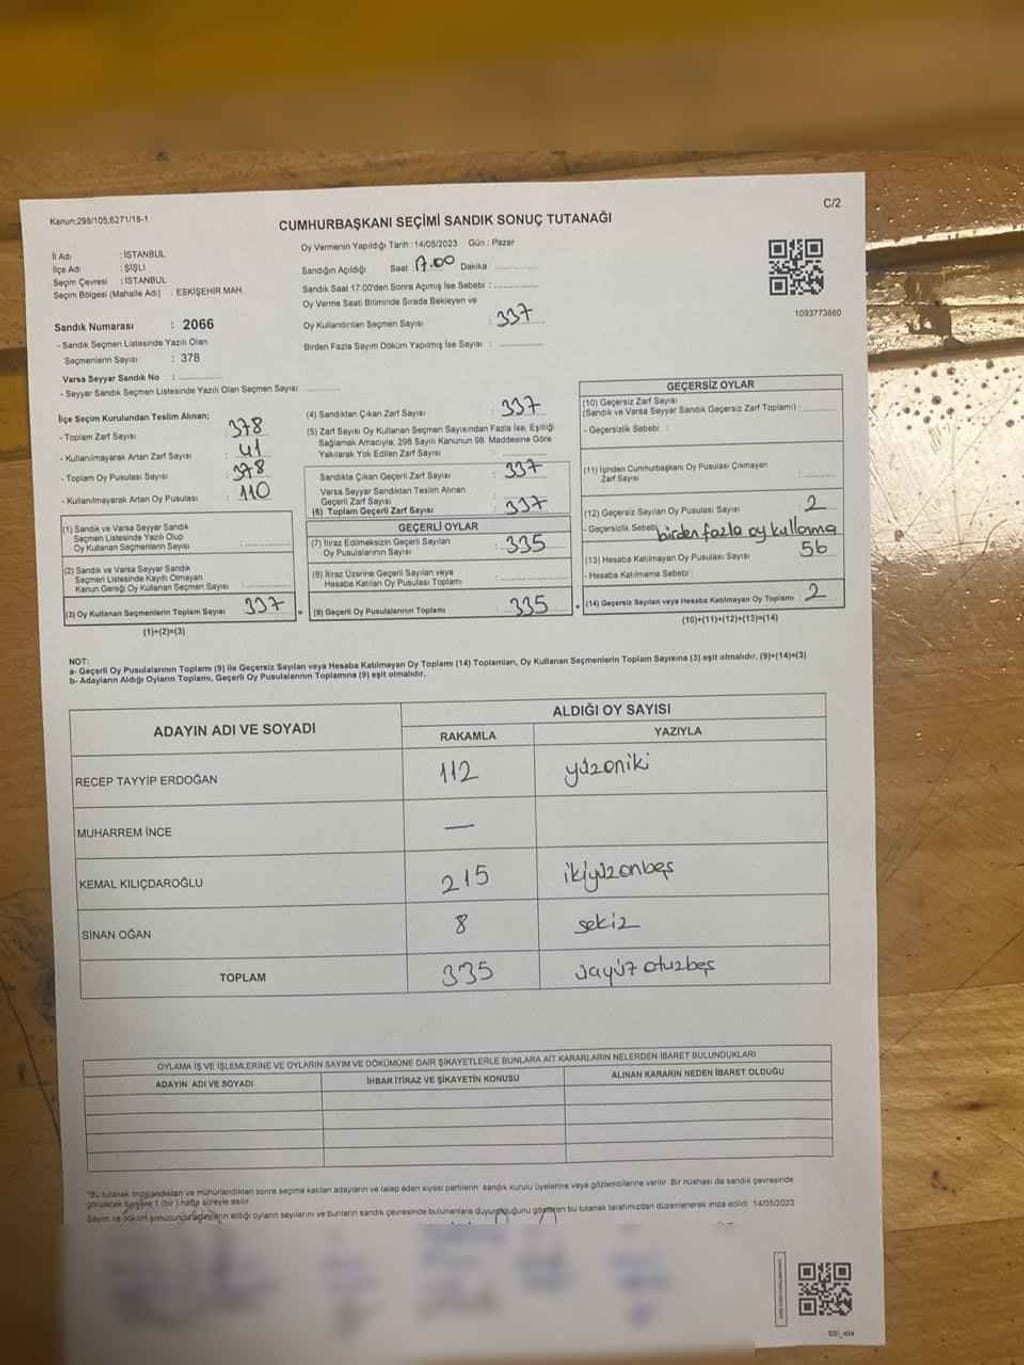 Kanun:298/105,6271/16-1
C/2
CUMHURBAŞKANI SEÇİMİ SANDIK SONUÇ TUTANAĞI
İl Adı : İSTANBUL
İlçe Adı : ŞİŞLİ
Seçim Çevresi : İSTANBUL
Seçim Bölgesi (Mahalle Adı) : ESKİŞEHİR MAH.
Sandık Numarası : 2066
- Sandık Seçmen Listesinde Yazılı Olan
Seçmenlerin Sayısı : 378
Varsa Seyyar Sandık No :
- Seyyar Sandık Seçmen Listesinde Yazılı Olan Seçmen Sayısı
Oy Vermenin Yapıldığı Tarih : 14/05/2023 Gün : Pazar
Sandığın Açıldığı Saat 17.00 Dakika
Sandık Saat 17:00'den Sonra Açılmış İse Sebebi :
Oy Verme Saati Bitiminde Sırada Bekleyen ve
Oy Kullandırılan Seçmen Sayısı : 337
Birden Fazla Sayım Döküm Yapılmış İse Sayısı :
1093773860
İlçe Seçim Kurulundan Teslim Alınan;
- Toplam Zarf Sayısı : 378
- Kullanılmayarak Artan Zarf Sayısı : 41
- Toplam Oy Pusulası Sayısı : 378
- Kullanılmayarak Artan Oy Pusulası : 110
(1) Sandık ve Varsa Seyyar Sandık
Seçmen Listesinde Yazılı Olup
Oy Kullanan Seçmenlerin Sayısı
(2) Sandık ve Varsa Seyyar Sandık
Seçmen Listesinde Kayıtlı Olmayan
Kanun Gereği Oy Kullanan Seçmen Sayısı
(3) Oy Kullanan Seçmenlerin Toplam Sayısı 337
(1)+(2)=(3)
(4) Sandıktan Çıkan Zarf Sayısı : 337
(5) Zarf Sayısı Oy Kullanan Seçmen Sayısından Fazla İse, Eşitliği
Sağlamak Amacıyla, 298 Sayılı Kanunun 98. Maddesine Göre
Yakılarak Yok Edilen Zarf Sayısı
Sandıkta Çıkan Geçerli Zarf Sayısı : 337
Varsa Seyyar Sandıktan Teslim Alınan
Geçerli Zarf Sayısı
(6) Toplam Geçerli Zarf Sayısı : 337
GEÇERLİ OYLAR
(7) İtiraz Edilmeksizin Geçerli Sayılan
Oy Pusulalarının Sayısı : 335
(8) İtiraz Üzerine Geçerli Sayılan veya
Hesaba Katılan Oy Pusulası Toplamı
(9) Geçerli Oy Pusulalarının Toplamı : 335
GEÇERSİZ OYLAR
(10) Geçersiz Zarf Sayısı
(Sandık ve Varsa Seyyar Sandık Geçersiz Zarf Toplamı) :
- Geçersizlik Sebebi :
(11) İçinden Cumhurbaşkanı Oy Pusulası Çıkmayan
Zarf Sayısı
(12) Geçersiz Sayılan Oy Pusulası Sayısı : 2
- Geçersizlik Sebebi birden fazla oy kullanma
(13) Hesaba Katılmayan Oy Pusulası Sayısı : 56
- Hesaba Katılmama Sebebi :
(14) Geçersiz Sayılan veya Hesaba Katılmayan Oy Toplamı : 2
(10)+(11)+(12)+(13)=(14)
NOT:
a- Geçerli Oy Pusulalarının Toplamı (9) ile Geçersiz Sayılan veya Hesaba Katılmayan Oy Toplamı (14) Toplamları, Oy Kullanan Seçmenlerin Toplam Sayısına (3) eşit olmalıdır. (9)+(14)=(3)
b- Adayların Aldığı Oyların Toplamı, Geçerli Oy Pusulalarının Toplamına (9) eşit olmalıdır.
ADAYIN ADI VE SOYADI
ALDIĞI OY SAYISI
RAKAMLA YAZIYLA
RECEP TAYYİP ERDOĞAN 112 yüzoniki
MUHARREM İNCE —
KEMAL KILIÇDAROĞLU 215 ikiyüzonbeş
SİNAN OĞAN 8 sekiz
TOPLAM 335 üçyüz otuzbeş
OYLAMA İŞ VE İŞLEMLERİNE VE OYLARIN SAYIM VE DÖKÜMÜNE DAİR ŞİKAYETLERLE BUNLARA AİT KARARLARIN NELERDEN İBARET BULUNDUKLARI
ADAYIN ADI VE SOYADI İHBAR İTİRAZ VE ŞİKAYETİN KONUSU ALINAN KARARIN NEDEN İBARET OLDUĞU
*Bu tutanak imzalandıktan ve mühürlendikten sonra seçime katılan adayların ve talep eden siyasi partilerin sandık kurulu üyelerine veya gözlemcilerine verilir. Bir nüshası da sandık çevresinde
görülecek şekilde 1 (bir) hafta süreyle asılır.
Sayım ve döküm sonucunda adayların aldığı oyların sayılarını ve bunların sandık çevresinde bulunanlara duyurulduğunu gösteren bu tutanak tarafımızdan düzenlenerek imza edildi. 14/05/2023